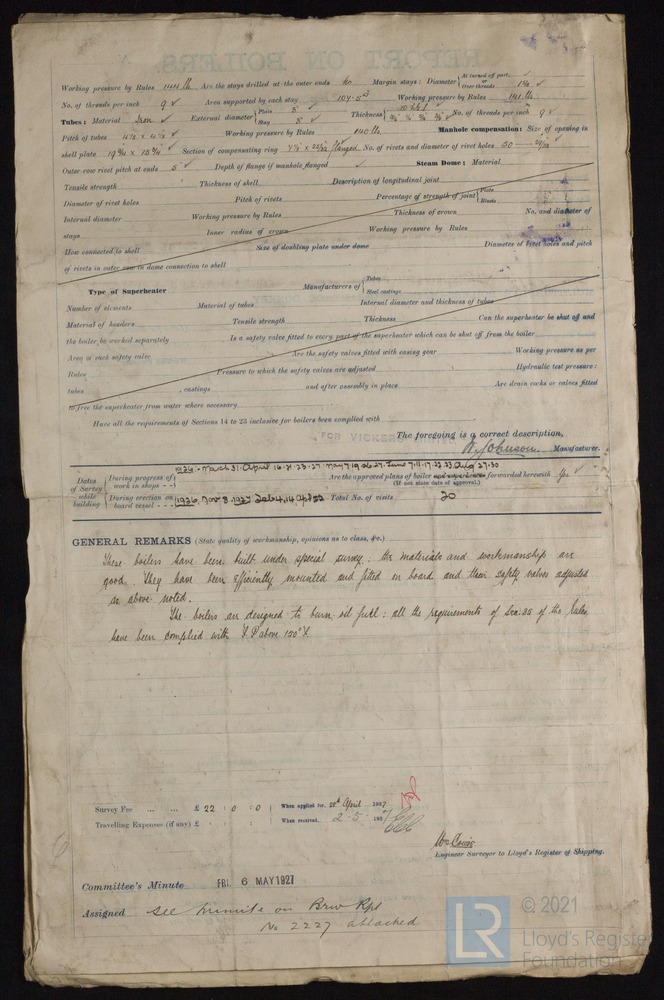 Working pressure by Rules 144 lb Are the stays drilled at the outer ends No Margin stays: Diameter At turned off part, or Over threads 1 3/4 ✓
No. of threads per inch 9 ✓ Area supported by each stay 104.53 Working pressure by Rules 141 lb.
Tubes: Material Iron ✓ External diameter Plain 3 Stay 3 ✓ Thickness No. of threads per inch 9 ✓
Pitch of tubes Working pressure by Rules 140 lb. Manhole compensation: Size of opening in
shell plate 19 3/4 × 15 3/4 Section of compensating ring flanged No. of rivets and diameter of rivet holes 30
Outer row rivet pitch at ends 5 ✓ Depth of flange if manhole flanged ✓ Steam Dome: Material
Tensile strength Thickness of shell Description of longitudinal joint
Diameter of rivet holes Pitch of rivets Percentage of strength of joint Plate Rivets
Internal diameter Working pressure by Rules Thickness of crown No. and diameter of
stays Inner radius of crown Working pressure by Rules
How connected to shell Size of doubling plate under dome Diameter of rivet holes and pitch
of rivets in outer row in dome connection to shell
Type of Superheater Manufacturers of Tubes Steel castings
Number of elements Material of tubes Internal diameter and thickness of tubes
Material of headers Tensile strength Thickness Can the superheater be shut off and
the boiler be worked separately Is a safety valve fitted to every part of the superheater which can be shut off from the boiler
Area of each safety valve Are the safety valves fitted with easing gear Working pressure as per
Rules Pressure to which the safety valves are adjusted Hydraulic test pressure:
tubes , castings and after assembly in place Are drain cocks or valves fitted
to free the superheater from water where necessary
Have all the requirements of Sections 14 to 23 inclusive for boilers been complied with
FOR VICKERS The foregoing is a correct description,
W. Johnson Manufacturer.
Dates of Survey while building During progress of work in shops - - 1926 - March 31. April 16. 21. 23. 27. May 7. 19. 26. 27. June 7. 11. 17. 22. 23. Aug 27. 30 Are the approved plans of boiler and superheater forwarded herewith Yes ✓
(If not state date of approval.)
During erection on board vessel - - - 1926. Nov 3. 1927 Feb 4. 14 Apl 22 Total No. of visits 20
GENERAL REMARKS (State quality of workmanship, opinions as to class, &c.)
These boilers have been built under special survey: the materials and workmanship are
good. They have been efficiently mounted and fitted on board and their safety valves adjusted
as above noted.
The boilers are designed to burn oil fuel: all the requirements of Sec: 35 of the Rules
have been complied with F.P. above 150° F.
Survey Fee ... ... £ 22 : 0 : 0 When applied for, 28th April 1927
Travelling Expenses (if any) £ : : When received, 2 - 5 - 1927
Engineer Surveyor to Lloyd's Register of Shipping.
Committee's Minute FRI. 6 MAY 1927
Assigned See minute on Brw Rpt
No 2227 attached
LR © 2021
Lloyd's Register
Foundation